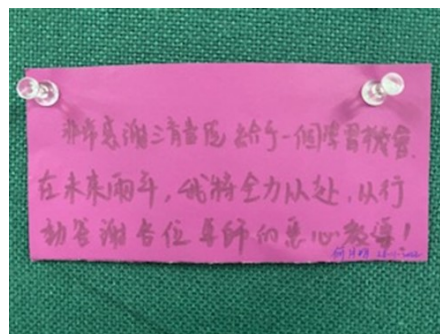 非常感謝三育書院給予一個學習機會.
在未來兩年,我將全力以赴,以行
動答謝各位導師的悉心教導!